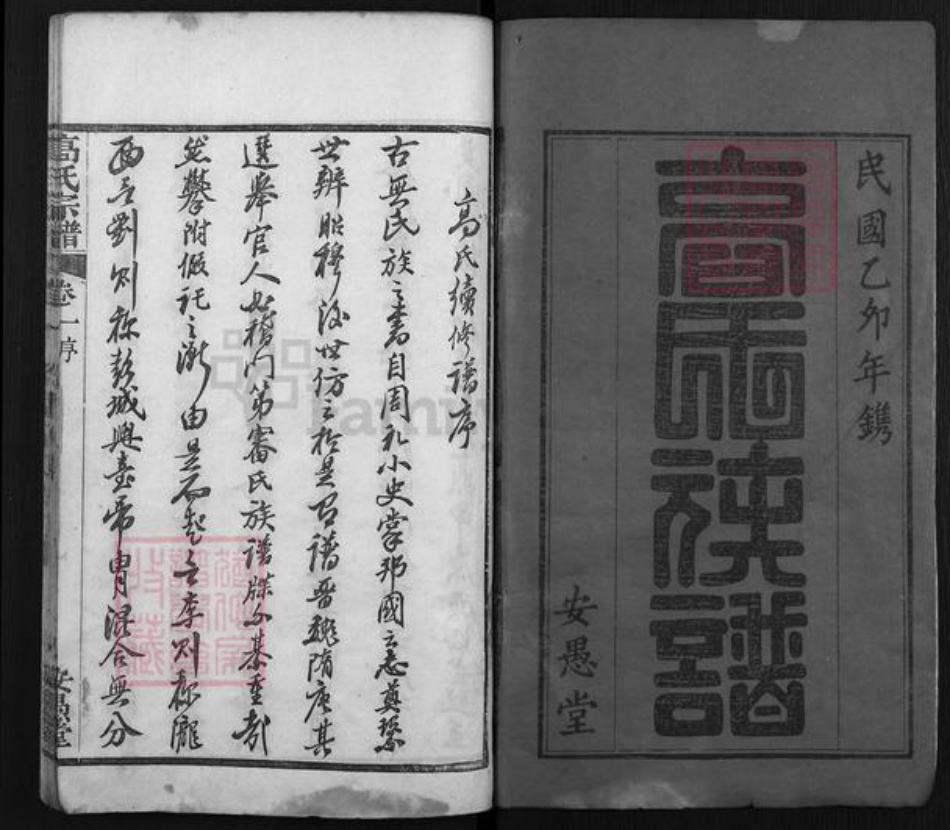 民國乙卯年鐫
高氏族譜
安愚堂
高氏續修譜序
古無氏族之書自周礼小史掌邦國之志奠繫
世辨昭穆後世仿之於是有譜晋魏隋唐其
選舉官人必稽門第審氏族譜牒不綦重哉
然攀附假託之漸由是而起言李則称隴
西言劉則称彭城興臺帝胄混合無分
高氏宗譜
卷一序
安愚堂